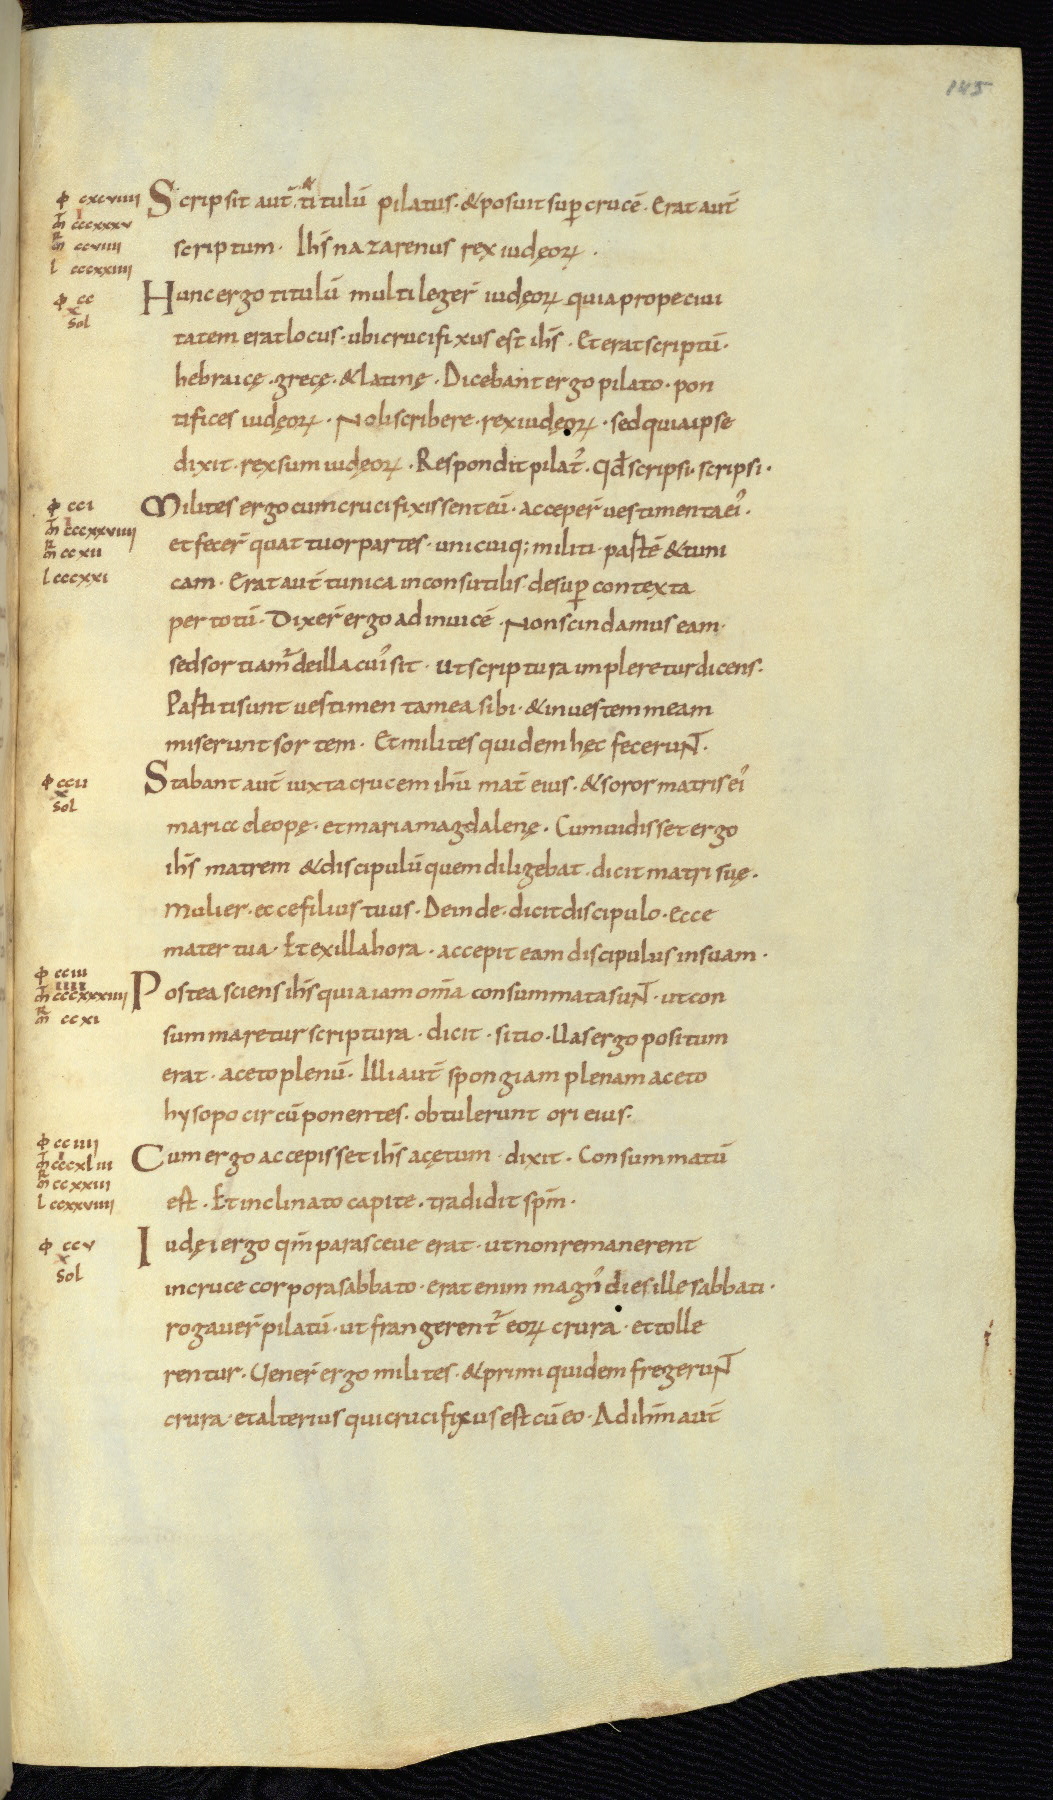 145
ϕ cxcviiii Scripsit aut̄ titulū pilatus · & posuit sup̱ crucē · Erat aut̄
m̄ cccxxxv
m̄ ccviiii scriptum · Ihs̄ nazarenus rex iudęoꝝ ·
l cccxxiiii
ϕ cc Hunc ergo titulū multi leger̄ iudęoꝝ quia prope ciui
x̄ Sol
tatem erat locus · ubi crucifixus est ihs̄ · Et erat scriptū ·
hebraicę · grecę · & latinę · Dicebant ergo pilato · pon
tifices iudęoꝝ · Noli scribere · rex iudęoꝝ · sed quia ipse
dixit · rex sum iudęoꝝ · Respondit pilat᾽ · Qđ scripsi · scripsi ·
ϕ cci Milites ergo cum crucifixissent eū · acceper̄ uestimenta ei᾽ ·
m̄ cccxxviiii
m̄ ccxii et fecer̄ quattuor partes · unicuiq; militi · partē & tuni
l cccxxi cam · Erat aut̄ tunica inconsutilis desup̱ contexta
per totū · Dixer̄ ergo ad inuicē · Non scindamus eam ·
sed sortiam᾽ de illa cui᾽ sit · ut scriptura impleretur dicens ·
Partiti sunt uestimenta mea sibi · & in uestem meam
miserunt sortem · Et milites quidem hęc fecerunt ·
ϕ ccii Stabant aut̄ iuxta crucem ihū mat̄ eius · & soror matris ei᾽
x̄ Sol
maria cleopę · et maria magdalenę · Cum uidisset ergo
ihs̄ matrem & discipulū quem diligebat · dicit matri suę ·
Mulier · ecce filius tuus · Deinde · dicit discipulo · Ecce
mater tua · Et ex illa hora · accepit eam discipulus in suam ·
ϕ cciii
m̄ cccxxxiiii Postea sciens ihs̄ quia iam om̄a consummata sunt · ut con
m̄ ccxi
summaretur scriptura · dicit · sitio · Uas ergo positum
erat · aceto plenū · Illi aut̄ spongiam plenam aceto
hysopo circūponentes · obtulerunt ori eius ·
ϕ cciiii
m̄ cccxliii Cum ergo accepisset ihs̄ acętum · dixit · Consummatū
m̄ ccxxiii
l ccxxviiii est · Et inclinato capite · tradidit sp̄m ·
ϕ ccv Iudęi ergo qm̄ parasceue erat · ut non remanerent
x̄ Sol
in cruce corpora sabbato · erat enim magn᾽ dies ille sabbati ·
rogauer̄ pilatū · ut frangerent᾽ eoꝝ crura · et tolle
rentur · Uener̄ ergo milites · & primi quidem fregerunt
crura · et alterius qui crucifixus est cū eo · Ad ihm̄ aut̄